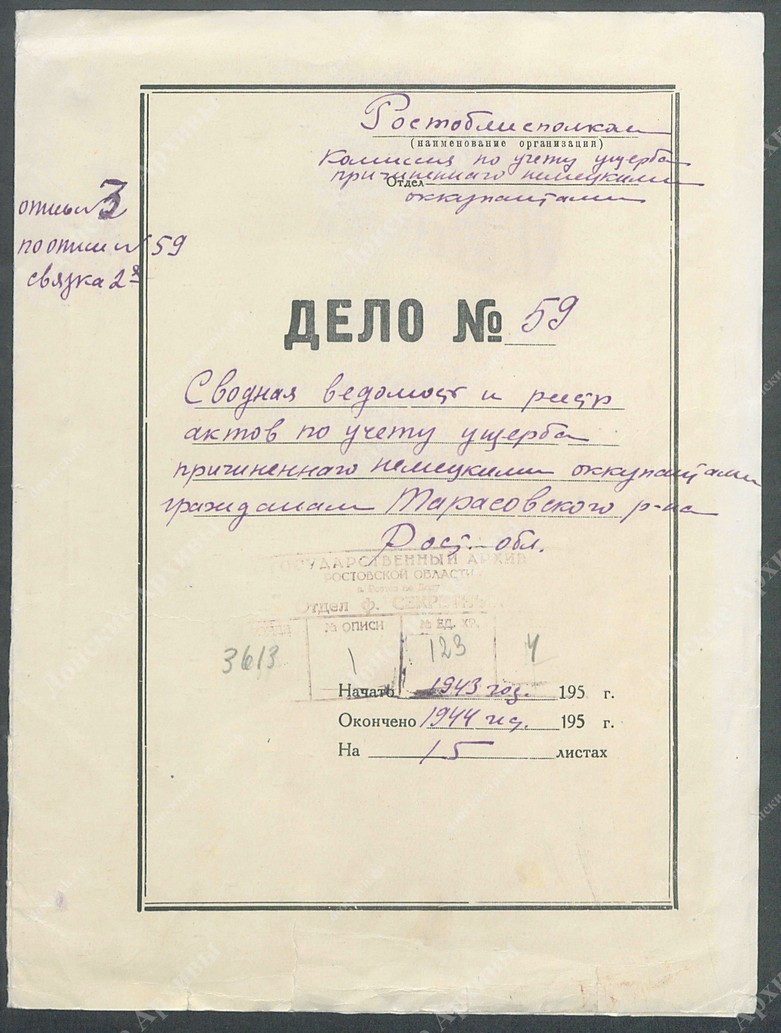 Ростоблисполком
(наименование организация)
Комиссия по учету ущерба
причиненнаго немецкими
Отдел
оккупантами
опись 3
по описи № 59
связка 2я
ДЕЛО № 59
Сводная ведомост и реестр
актов по учету ущерба
причиненнаго немецкими оккупантами
гражданам Тарасовского р-на
Рост. обл.
ГОСУДАРСТВЕННЫЙ АРХИВ
РОСТОВСКОЙ ОБЛАСТИ
Отдел ф. СЕКРЕТН
№ ОПИСИ № ЕД. ХР.
3613 1 123 4
Начато 1943 год. 195 г.
Окончено 1944 год. 195 г.
На 15 листах